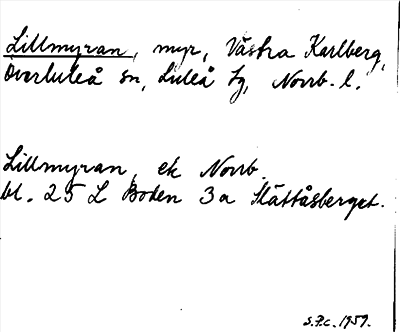 Lillmyran, myr, Västra Karlberg,
Överluleå sn, Luleå tg, Norrb. l.
Lillmyran, ek Norrb.
bl. 25 L Boden 3a Slåttåsberget.
S.F.c. 1959.